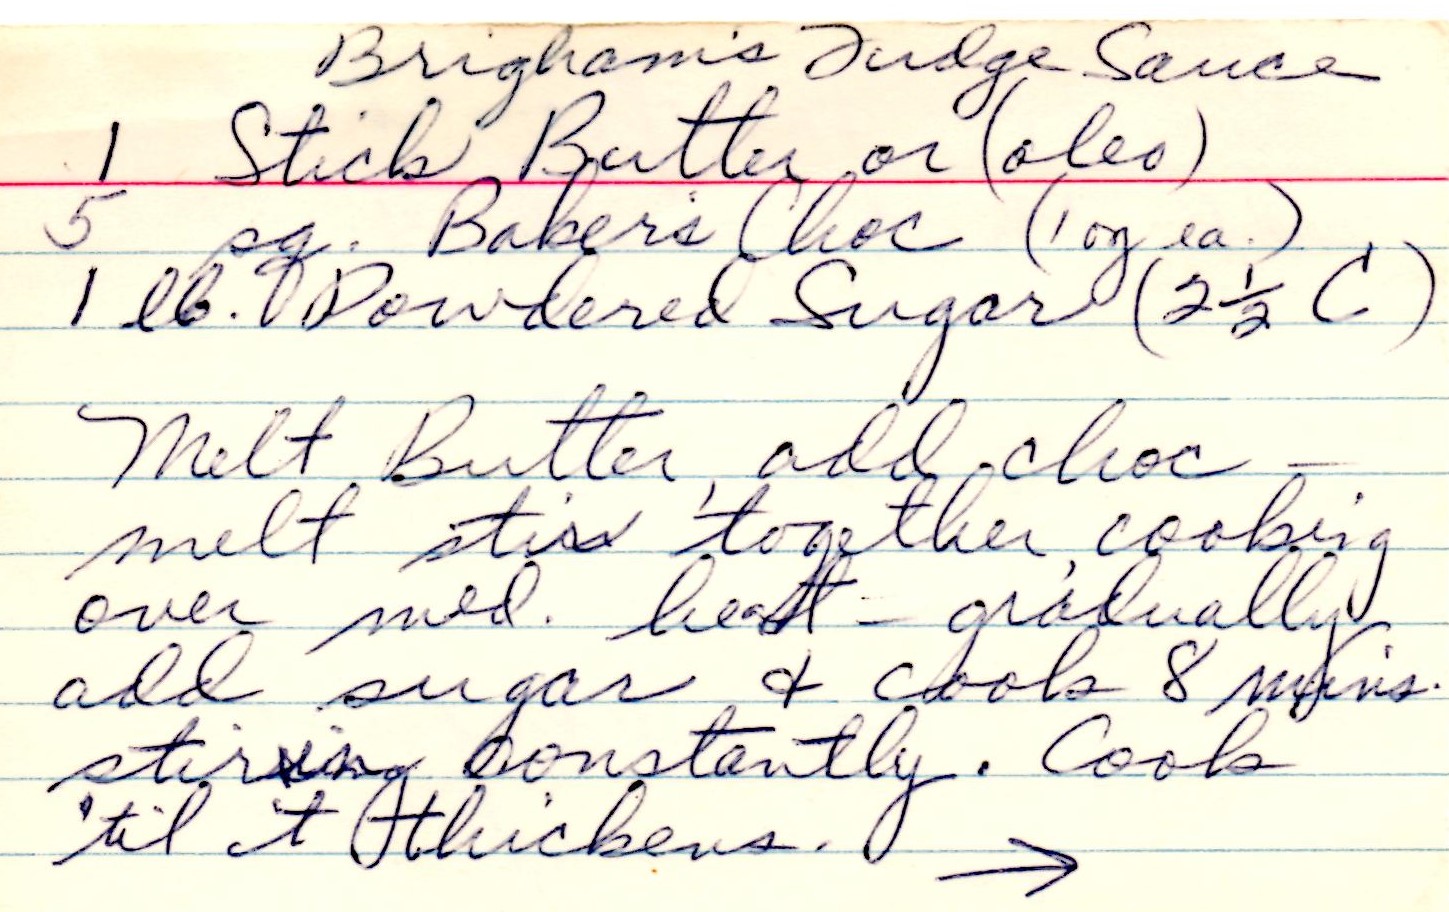 Brigham's Fudge Sauce
1 Stick Butter or (oleo)
5 sq. Baker's Choc (1 oz ea.)
1 lb. Powdered Sugar (2 1/2 C)
Melt Butter, add choc -
melt stir together, cooking
over med. heat - gradually
add sugar & cook 8 mins.
stirring constantly. Cook
'til it thickens.
→